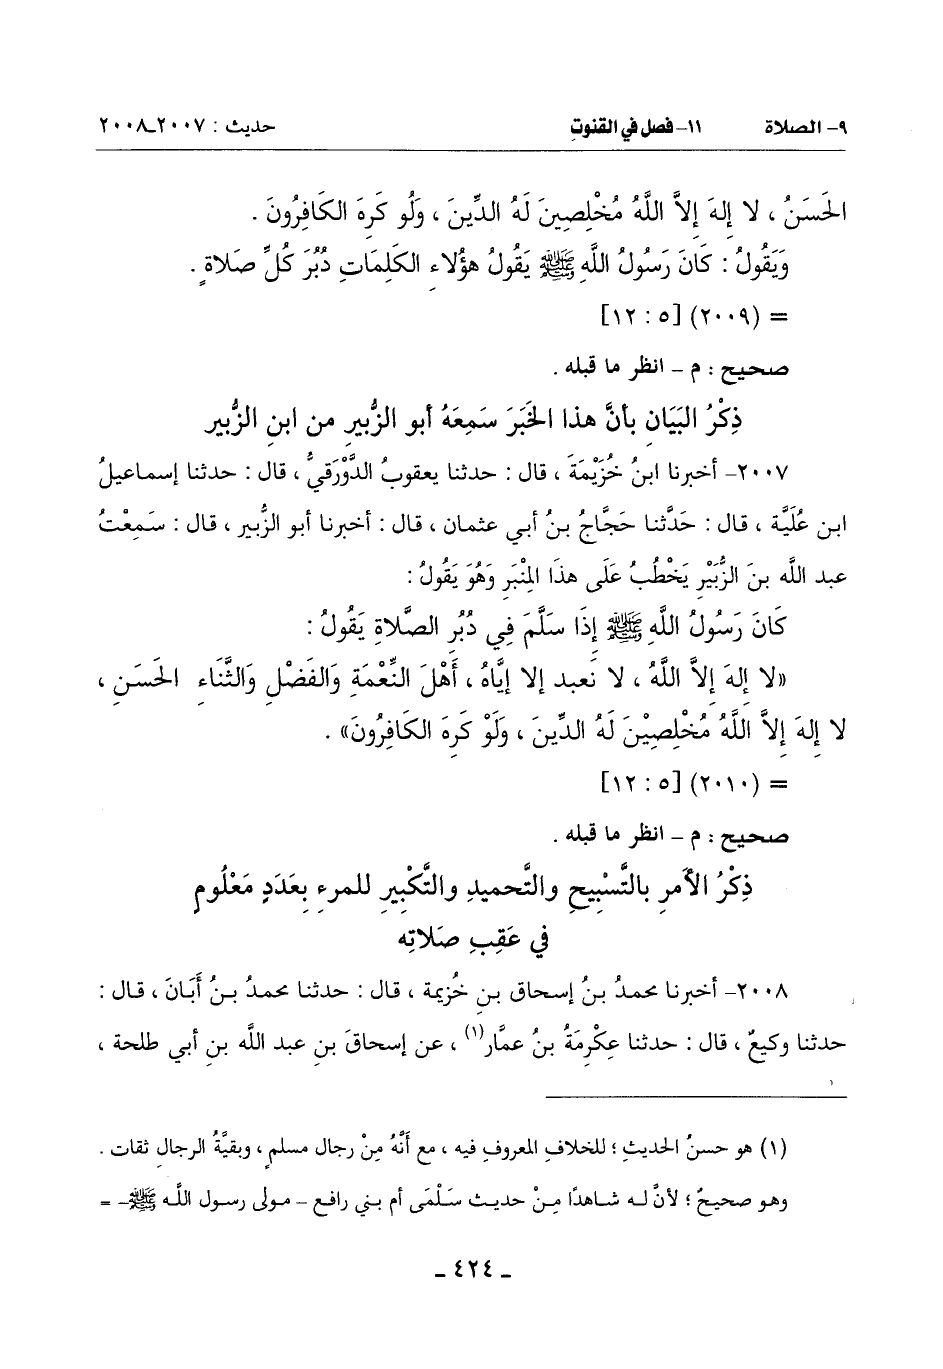 ٩- الصلاة ١١- فصل في القنوتِ حديث : ٢٠٠٧ـ٢٠٠٨
الحَسَنُ ، لا إلهَ إلاَّ اللَّهُ مُخْلِصِينَ لَهُ الدِّينَ ، ولَو كَرِهَ الكَافِرُونَ .
وَيَقُولُ : كَانَ رَسُولُ اللَّهِ ﷺ يَقُولُ هؤُلاءِ الكَلِمَاتِ دُبُرَ كُلِّ صَلاةٍ .
= (٢٠٠٩) [٥ : ١٢]
صحيح : م – انظر ما قبله .
ذِكْرُ البَيَانِ بأنَّ هذا الخَبَرَ سَمِعَهُ أبو الزُّبيرِ من ابنِ الزُّبير
٢٠٠٧– أخبرنا ابنُ خُزَيْمَةَ ، قال : حدثنا يعقوبُ الدَّوْرَقيُّ ، قال : حدثنا إسماعيلُ
ابن عُلَيَّة ، قال : حَدَّثنا حَجَّاجُ بنُ أبي عثمان ، قال : أخبرنا أبو الزُّبير ، قال : سَمِعْتُ
عبد اللَّه بنَ الزُّبَيْرِ يَخْطُبُ عَلَى هذَا المِنْبَرِ وَهُوَ يَقُولُ :
كَانَ رَسُولُ اللَّهِ ﷺ إذَا سَلَّمَ فِي دُبُرِ الصَّلاةِ يَقُولُ :
«لا إلهَ إلاَّ اللَّهُ ، لا نَعبد إلا إيَّاهُ ، أَهْلَ النِّعْمَةِ وَالفَضْلِ وَالثَّنَاءِ الحَسَنِ ،
لا إِلهَ إِلاَّ اللَّهُ مُخْلِصِيْنَ لَهُ الدِّينَ ، وَلَوْ كَرِهَ الكَافِرُونَ» .
= (٢٠١٠) [٥ : ١٢]
صحيح : م – انظر ما قبله .
ذِكْرُ الأمرِ بالتَّسْبِيحِ والتَّحميدِ والتَّكْبِيرِ للمرءِ بعَدَدٍ مَعْلُومٍ
في عَقِبِ صَلاتِه
٢٠٠٨– أخبرنا محمدُ بنُ إسحاق بنِ خُزيمة ، قال : حدثنا محمدُ بنُ أَبَانَ ، قال :
حدثنا وكيعٌ ، قال : حدثنا عِكْرِمَةُ بنُ عمَّار(١) ، عن إسحاقَ بنِ عبد اللَّه بنِ أبي طلحة ،
(١) هو حسنُ الحديثِ ؛ للخلافِ المعروفِ فيه ، مع أنَّهُ مِنْ رجال مسلمٍ ، وبقيَّةُ الرجالِ ثقات .
وهو صحيحٌ ؛ لأنَّ له شاهدًا مِنْ حديث سَلْمَى أم بني رافع – مولى رسول اللَّه ﷺ– =
ـ ٤٢٤ ـ